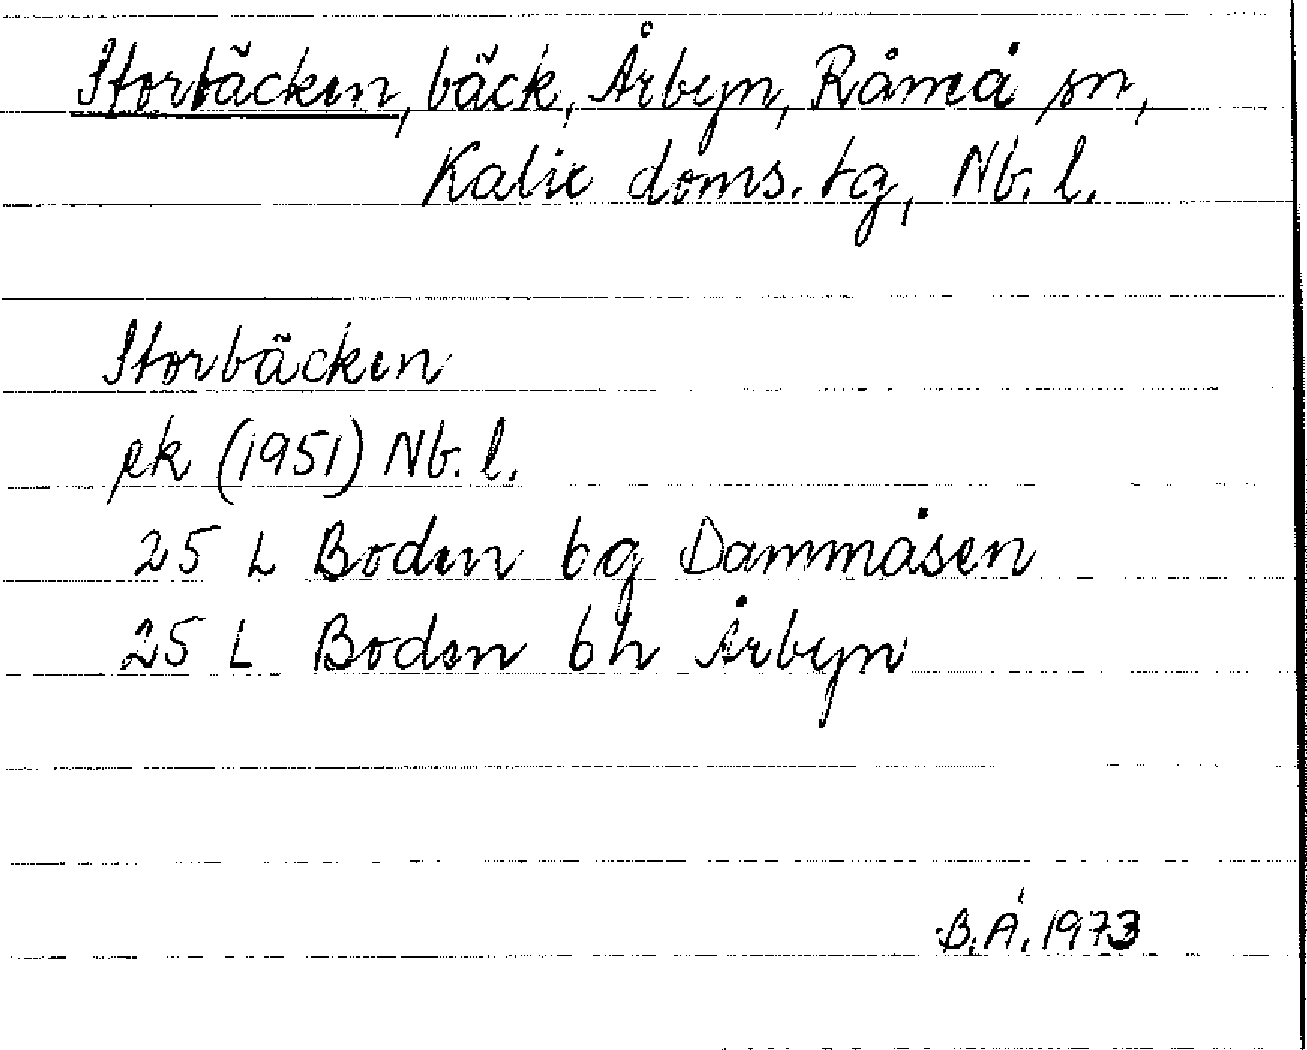 Storbäcken, bäck, Årbyn, Råneå sn,
Kalix doms. tg, Nb. l.
Storbäcken
ek (1951) Nb. l.
25 L Boden bg Dammåsen
25 L Boden bh Årbyn
B.Å. 1973